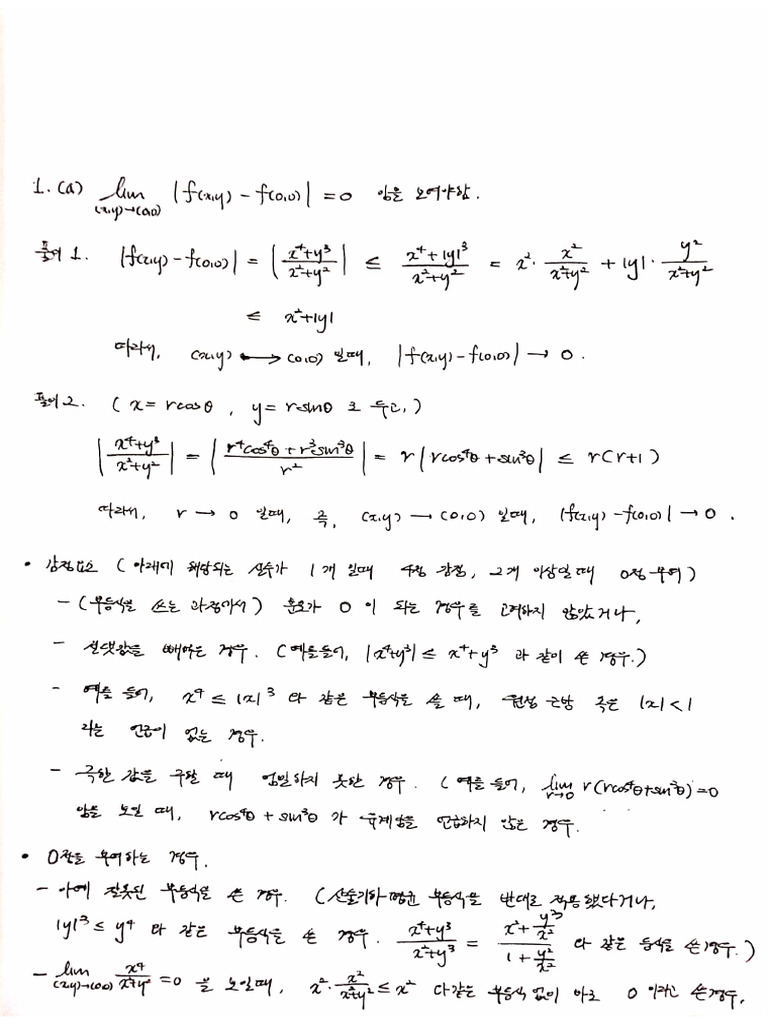 1. (a) lim_{(x,y)→(0,0)} |f(x,y) - f(0,0)| = 0 임을 보여야함.
풀이 1. |f(x,y) - f(0,0)| = |\frac{x^4+y^3}{x^2+y^2}| ≤ \frac{x^4+|y|^3}{x^2+y^2} = x^2·\frac{x^2}{x^2+y^2} + |y|·\frac{y^2}{x^2+y^2}
≤ x^2+|y|
따라서, (x,y) → (0,0) 일때, |f(x,y) - f(0,0)| → 0.
풀이 2. ( x = rcosθ , y = rsinθ 로 두고, )
|\frac{x^4+y^3}{x^2+y^2}| = |\frac{r^4cos^4θ + r^3sin^3θ}{r^2}| = r|rcos^4θ + sin^3θ| ≤ r(r+1)
따라서, r → 0 일때, 즉, (x,y) → (0,0) 일때, |f(x,y) - f(0,0)| → 0 .
• 감점요소 ( 아래에 해당되는 실수가 1개 일때 4점 감점, 2개 이상일 때 0점 부여 )
- ( 부등식을 쓰는 과정에서 ) 분모가 0 이 되는 경우를 고려하지 않았거나,
- 절댓값을 빼먹는 경우. ( 예를들어, |x^4+y^3| ≤ x^4+y^3 과 같이 쓴 경우. )
- 예를 들어, x^4 ≤ |x|^3 와 같은 부등식을 쓸 때, 원점 근방 혹은 |x|<1
라는 언급이 없는 경우.
- 극한 값을 구할 때 엄밀하지 못한 경우. ( 예를 들어, lim_{r→0} r(rcos^4θ+sin^3θ)=0
임을 보일 때, rcos^4θ + sin^3θ 가 유계임을 언급하지 않은 경우.
• 0점을 부여하는 경우.
- 아예 잘못된 부등식을 쓴 경우. ( 산술기하 평균 부등식을 반대로 적용했다거나,
|y|^3 ≤ y^4 와 같은 부등식을 쓴 경우. \frac{x^4+y^3}{x^2+y^3} = \frac{x^2+\frac{y^3}{x^2}}{1+\frac{y^2}{x^2}} 와 같은 등식을 쓴 경우. )
- lim_{(x,y)→(0,0)} \frac{x^4}{x^2+y^2} = 0 을 보일때, x^2·\frac{x^2}{x^2+y^2} ≤ x^2 과 같은 부등식 없이 바로 0 이라고 쓴 경우.